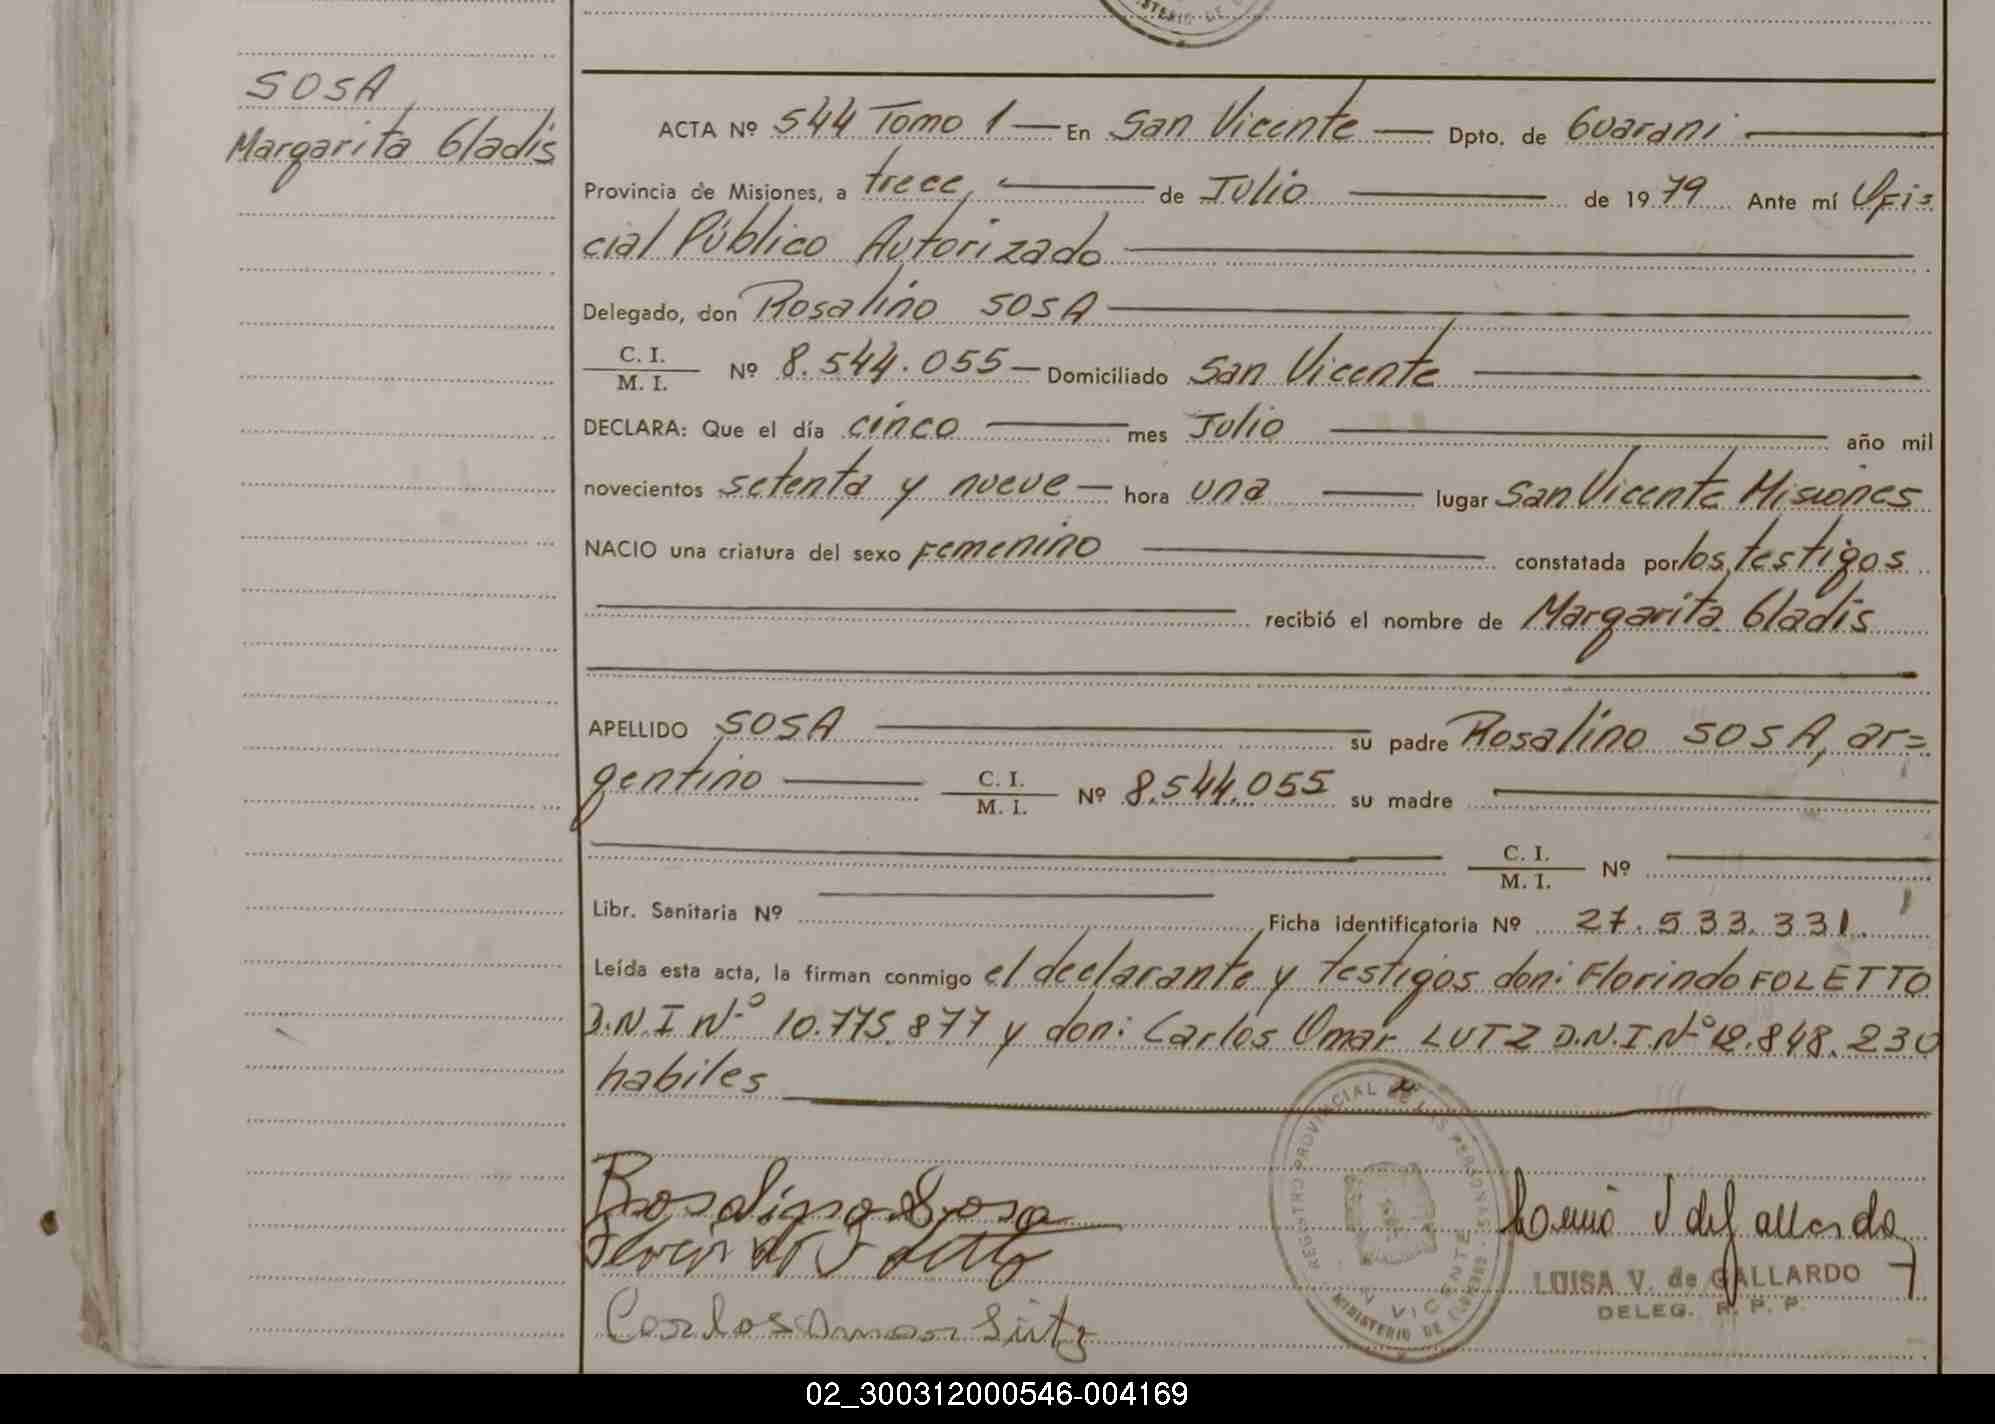 MINISTERIO DE
SOSA
Margarita Gladis
ACTA Nº 544 Tomo 1 — En San Vicente — Dpto. de Guarani
Provincia de Misiones, a trece, de Julio de 1979 Ante mí Ofi=
cial Público Autorizado
Delegado, don Rosalino SOSA
C. I.
M. I. Nº 8.544.055 — Domiciliado San Vicente
DECLARA: Que el día cinco mes Julio año mil
novecientos setenta y nueve — hora una lugar San Vicente Misiones
NACIO una criatura del sexo Femenino constatada por los testigos
recibió el nombre de Margarita Gladis
APELLIDO SOSA su padre Rosalino SOSA, ar=
gentino C. I.
M. I. Nº 8.544.055 su madre
C. I.
M. I. Nº
Libr. Sanitaria Nº Ficha identificatoria Nº 27.533.331.
Leída esta acta, la firman conmigo el declarante y testigos don: Florindo FOLETTO
D.N.I Nº 10.775.877 y don: Carlos Omar LUTZ D.N.I Nº 12.848.230
habiles
REGISTRO PROVINCIAL DE LAS PERSONAS
VICENTE
MINISTERIO DE
Rosalino Sosa
Carlos Omar Lutz
LUISA V. de GALLARDO
DELEG. R. P. P.
02_300312000546-004169